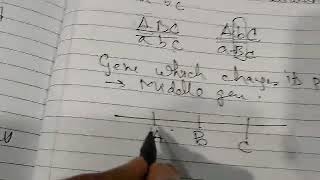 A B C A b C
a b C a B C
Gene which changes its
→ Middle gene.
A B C